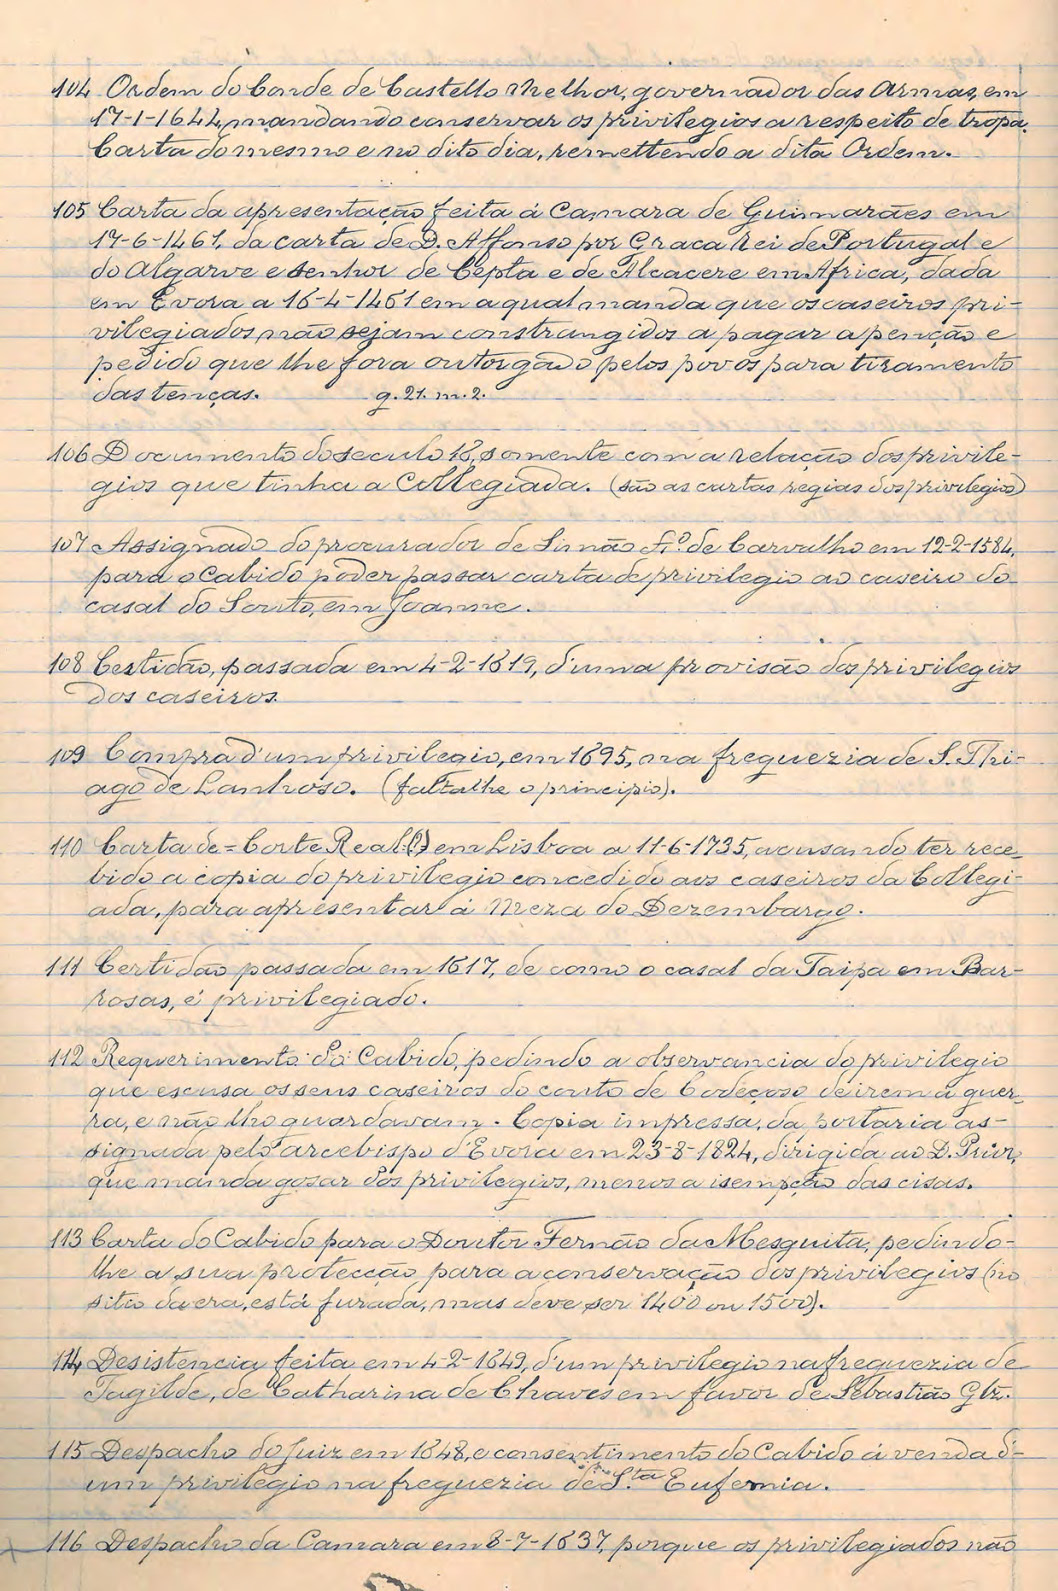 104 Ordem do Conde de Castello Melhor, governador das Armas, em
17-1-1644, mandando conservar os privilegios a respeito de tropa.
Carta do mesmo e no dito dia, remettendo a dita Ordem.
105 Carta da apresentação feita á Camara de Guimarães em
17-6-1461, da carta de D. Affonso por Graca Rei de Portugal e
do Algarve e senhor de Cepta e de Alcacere em Africa, dada
em Evora a 16-4-1461 em a qual manda que os caseiros pri-
vilegiados não sejam constrangidos a pagar a penção e
pedido que lhe fora outorgado pelos povos para tiramento
das tenças. g. 21. m. 2.
106 Documento do seculo 18, somente com a relação dos privile-
gios que tinha a Collegiada. (são as cartas regias dos privilegios)
107 Assignado do procurador de Simão Fr.º de Carvalho em 12-2-1584,
para o Cabido poder passar carta de privilegio ao caseiro do
casal do Souto, em Joanne.
108 Certidão, passada em 4-2-1619, d'uma provisão dos privilegios
dos caseiros.
109 Compra d'um privilegio, em 1695, na freguezia de S. Thi-
ago de Lanhoso. (faltalhe o principio).
110 Carta de = Corte Real (?) em Lisboa a 11-6-1735, acusando ter rece-
bido a copia do privilegio concedido aos caseiros da Collegi-
ada, para apresentar á Meza do Dezembargo.
111 Certidão passada em 1617, de como o casal da Taipa em Bar-
rosas, é privilegiado.
112 Requerimento do Cabido, pedindo a observancia do privilegio
que escusa os seus caseiros do couto de Codeçoso de irem á guer-
ra, e não lho guardavam. Copia impressa, da portaria as-
signada pelo arcebispo d'Evora em 23-8-1824, dirigida ao D. Prior,
que manda gosar dos privilegios, menos a isempção das cisas.
113 Carta do Cabido para o Doutor Fernão da Mesquita, pedindo-
lhe a sua protecção para a conservação dos privilegios (no
sitio da era, está furada, mas deve ser 1400 ou 1500).
114 Desistencia feita em 4-2-1649, d'um privilegio na freguezia de
Tagilde, de Catharina de Chaves em favor de Sebastião Glz.
115 Despacho do Juiz em 1648, e consentimento do Cabido á venda d'
um privilegio na freguezia de S.ta Eufemia.
116 Despacho da Camara em 8-7-1637, porque os privilegiados não